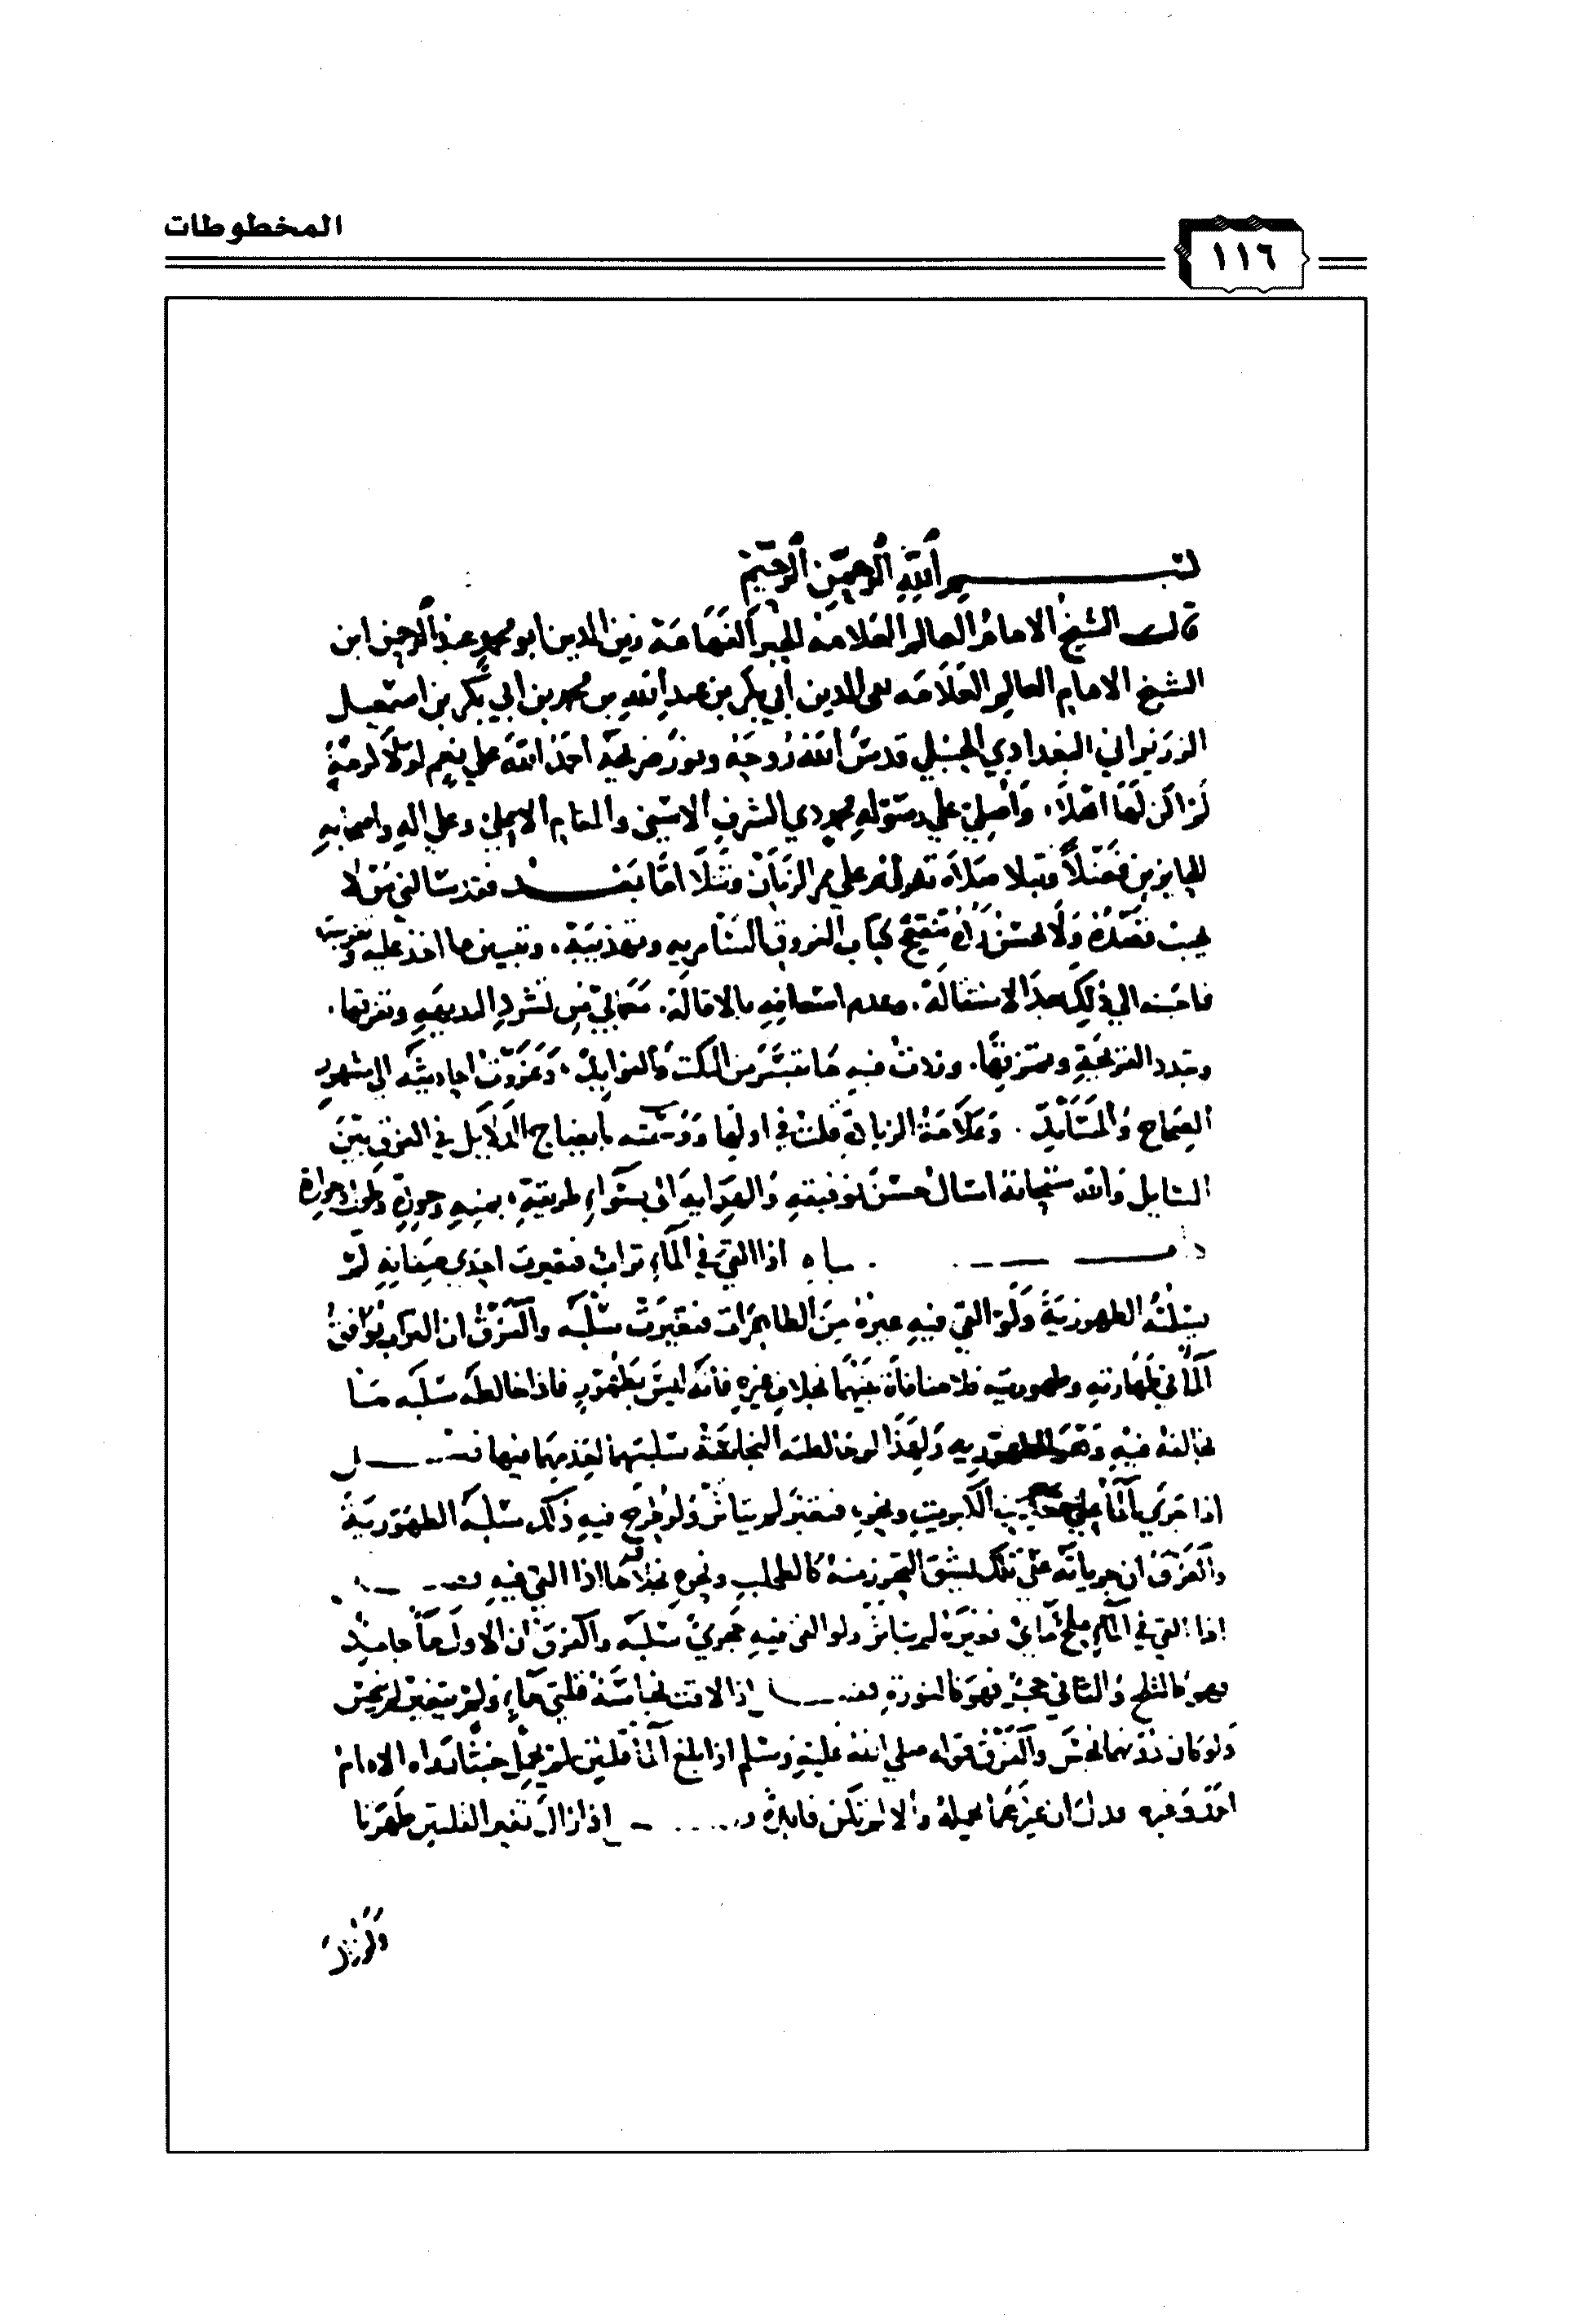 المخطوطات
١١٦
بسم الله الرحمن الرحيم
قال الشيخ الامام العالم العلامة الحبر الفهامة زين الدين ابو محمد عبد الرحيم ابن
الشيخ الامام العالم العلامه تقي الدين ابي بكر بن عبد الله بن محمد بن ابي بكر بن اسمعيل
الزريراني البغدادي الحنبلي قدس الله روحه ونور ضريحه احمد الله علي نعم لولا كرمه
لم اكن لها اهلا واصلي علي رسوله محمد ذي الشرف الاسنى والمقام الاعلى وعلي اله واصحابه
الحايزين فضلا ونبلا صلاة تدوم لهم علي مر الزمان وتتلا اما بعد فقد سالني من لا
يجب قصده ولا يحسن رده تنقيح كتاب الفروق السامريه وتهذيبه وتبيين ما اخذ عليه وتقريبه
فاجبته الي ذلك بعد الاستقالة وعدم اسعافه بالاقالة مع ما بي من تشرد البديهه وتفرقها
وتبدد القريحة وتمزقها وزدت فيه ما تيسر من النكت كالفوايد وعزوت احاديثه الي مشهور
الصحاح والمسانيد وعلامة الزيادة قلت في اولها ووسمته بايضاح الدلايل في الفرق بين
المسايل والله سبحانه اسال حسن توفيقه والهدايه الى سواء طريقه بمنه وجوده
اذا القي في الماء تراب فتغيرت احدى صفاته لم
يسلبه الطهورية ولو القي فيه غيره من الطاهرات فتغيرت سلبه والفرق ان التراب يوافق
الماء في طهارته وطهوريته فلا منافاة بينهما بخلاف غيره فانه ليس بطهور فاذا خالطه سلبه ما
خالفه فيه وهو الطهوريه ولهذا لو خالطته النجاسة سلبتهما لعدمهما فيها فصل
اذا جري الماء علي الكبريت ونحوه فتغير لم يتاثر ولو طرح فيه ذلك سلبه الطهورية
والفرق ان جريانه على تلك يشق التحرز منه كالطحلب ونحوه بخلاف ما اذا القي فيه
اذا القي في الماء ملح مائي فغيره لم يتاثر ولو القي فيه حجري سلبه والفرق ان الاول ماء جامد
فهو كالثلج والثاني حجر فهو كالنورة فصل اذا لاقت نجاسة قلتي ماء ولم يتغير لم ينجس
ولو كان دونهما نجس والفرق قوله صلي الله عليه وسلم اذا بلغ الماء قلتين لم يحمل خبثا رواه الامام
احمد وغيره فدل ان غيرهما يحمله والا لم تكن فايدة اذا زال تغير القلتين طهرتا